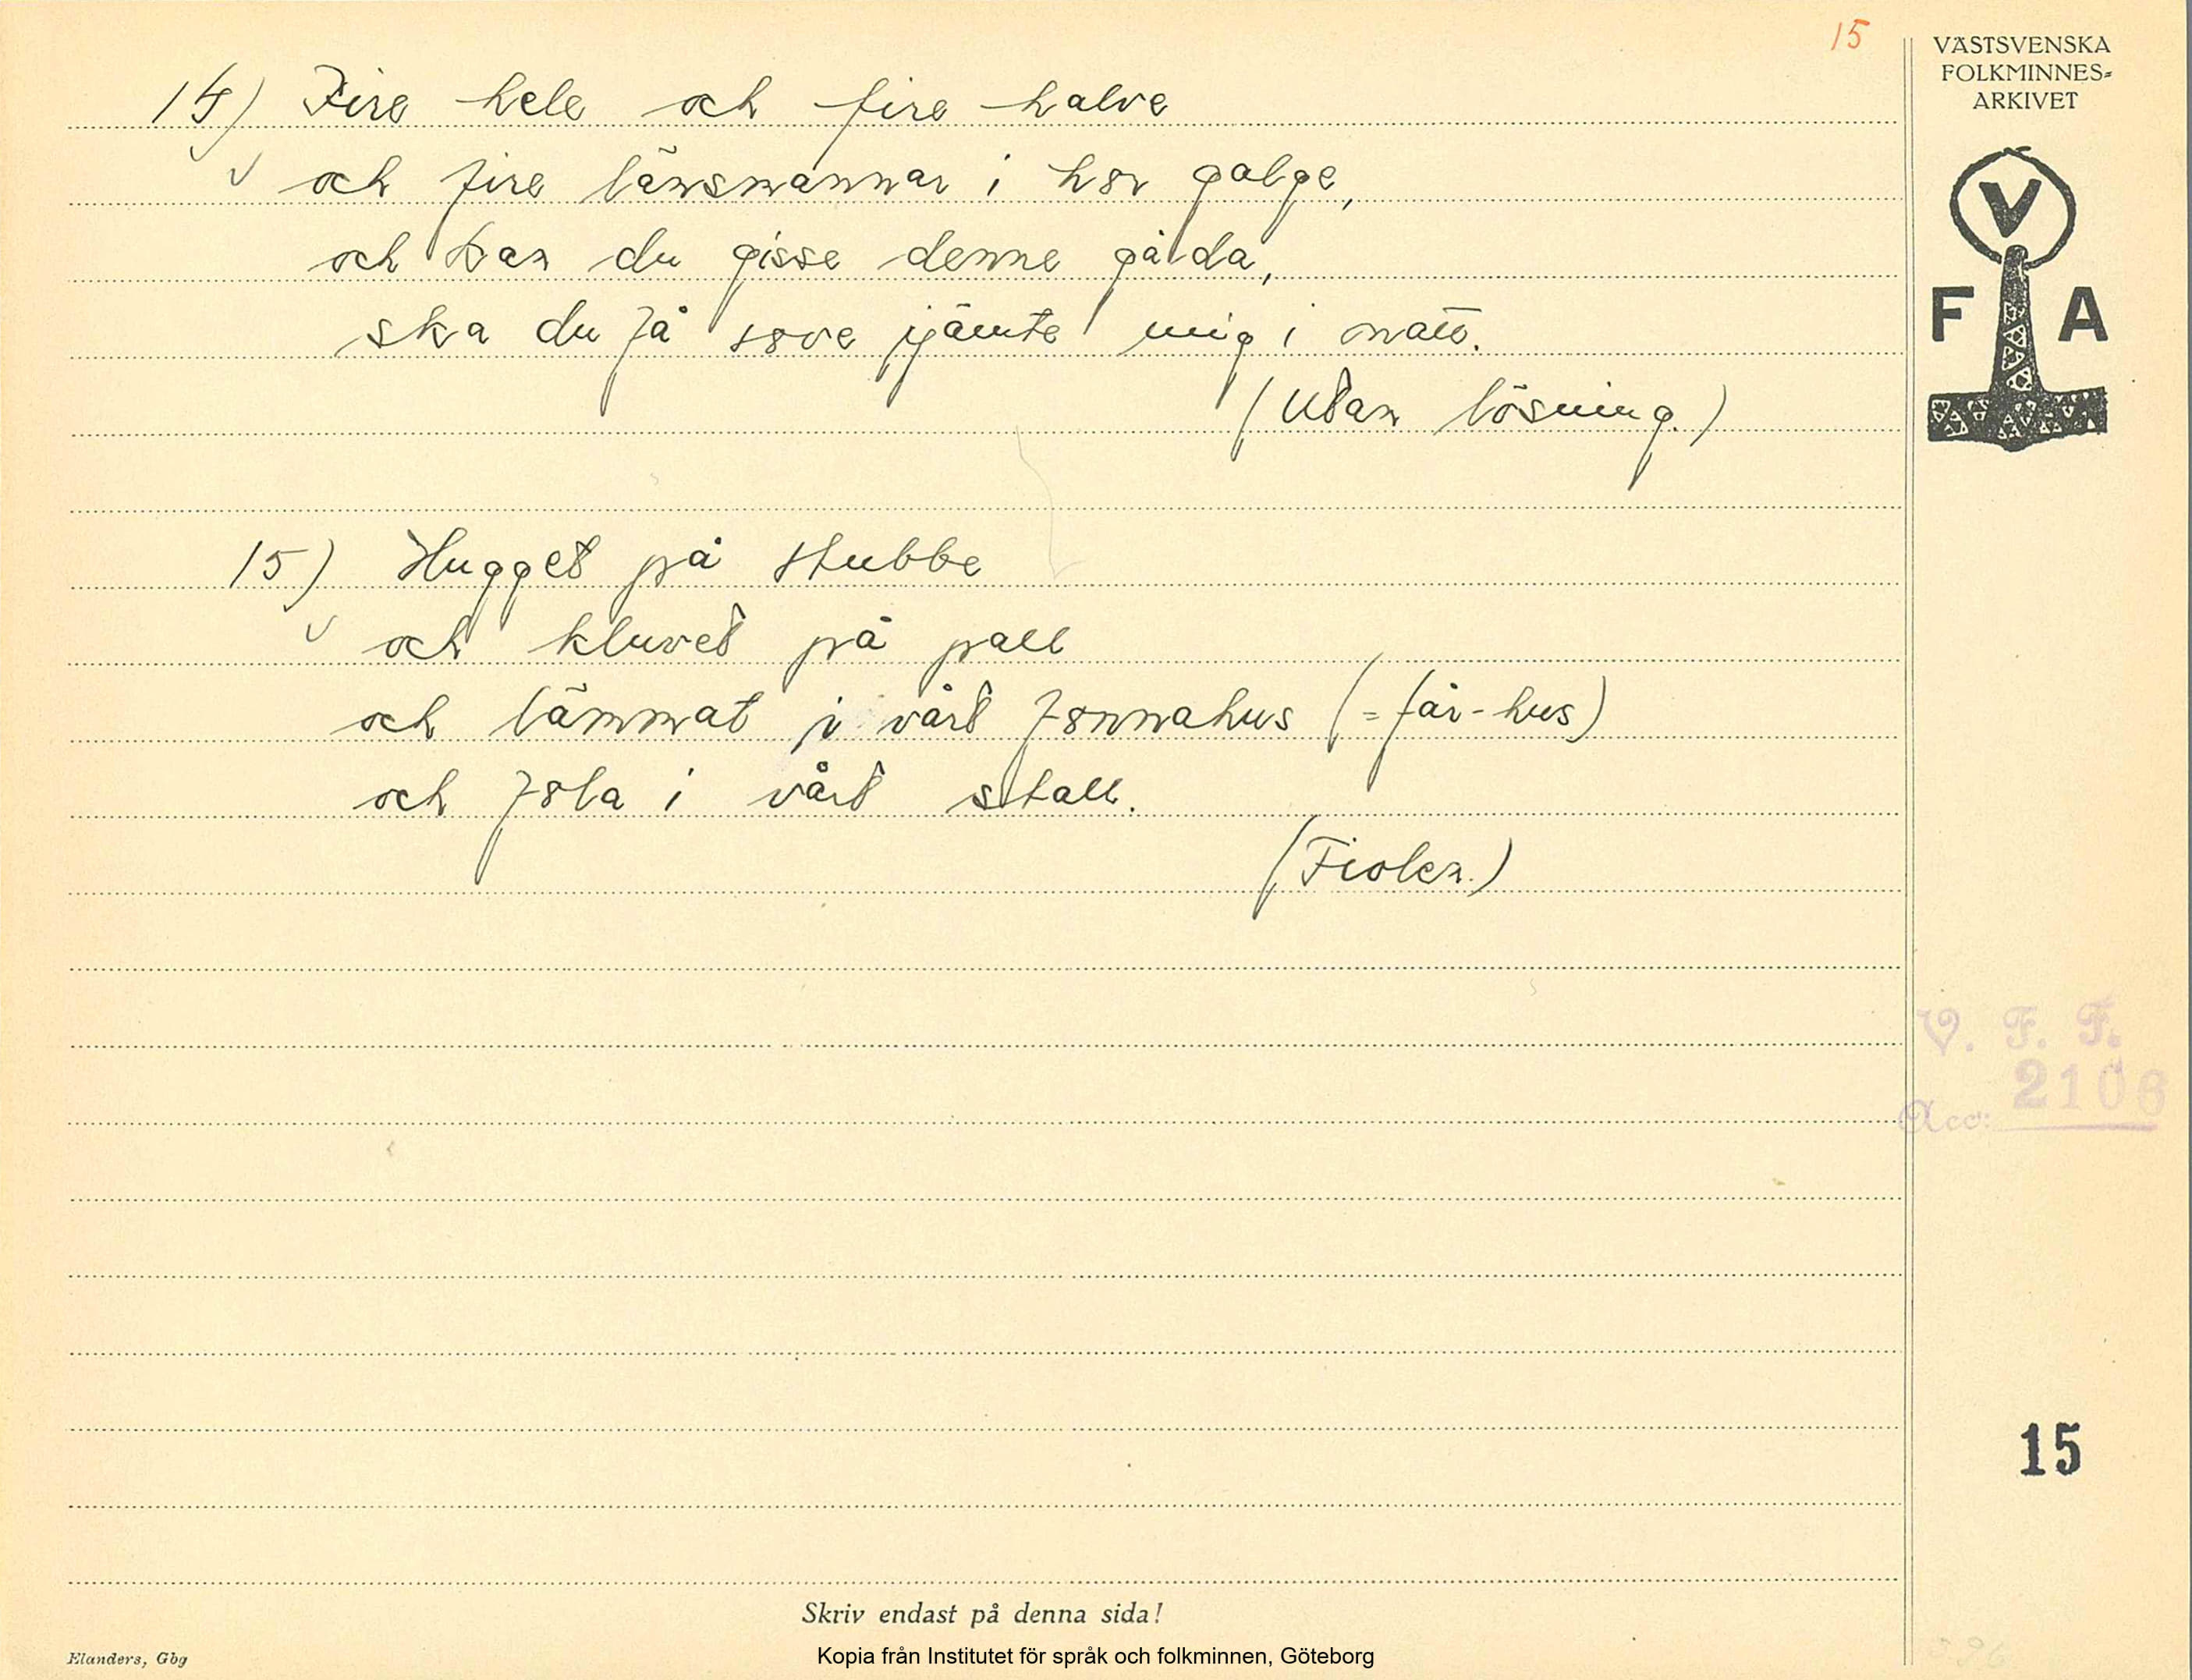 15
VÄSTSVENSKA
FOLKMINNES=
ARKIVET
V
F A
14) Fire hele och fire halve
och fire länsmannar i h8r galge,
och kan du gisse denne gåda,
ska du få s8ve jämte mig i natt.
(Utan lösning.)
15) Hugget på stubbe
och kluvet på pall
och lämmat i vårt f8nnahus (= får-hus)
och f8la i vårt stall.
(Fiolen.)
V. F. F.
Acc: 2106
15
Skriv endast på denna sida!
Elanders, Gbg
Kopia från Institutet för språk och folkminnen, Göteborg